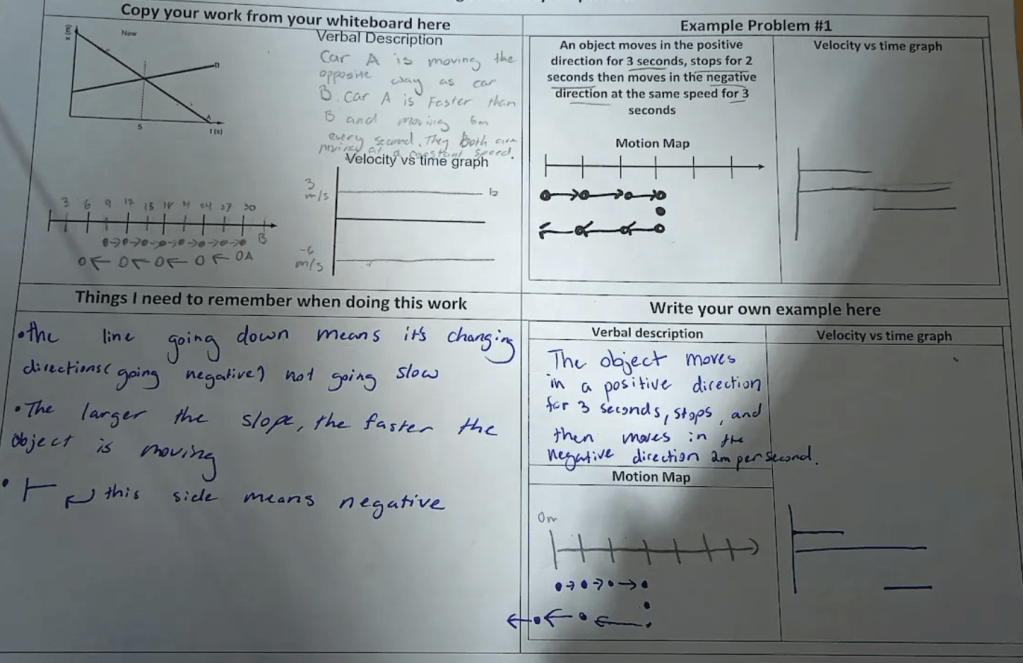 Copy your work from your whiteboard here
x (m)
New
B
A
5
t(s)
Verbal Description
Car A is moving the
opposite way as car
B. Car A is Faster than
B and moving 6m
every second. They Both are
moving at a constant speed.
Velocity vs time graph
3
m/s
b
-6
m/s
3 6 9 12 15 18 24 27 30
B
A
Example Problem #1
An object moves in the positive
direction for 3 seconds, stops for 2
seconds then moves in the negative
direction at the same speed for 3
seconds
Motion Map
Velocity vs time graph
Things I need to remember when doing this work
•the line going down means it's changing
directions(going negative) not going slow
•The larger the slope, the faster the
object is moving
• this side means negative
Write your own example here
Verbal description
The object moves
in a positive direction
for 3 seconds, stops, and
then moves in the
negative direction 2m per second.
Motion Map
0m
Velocity vs time graph